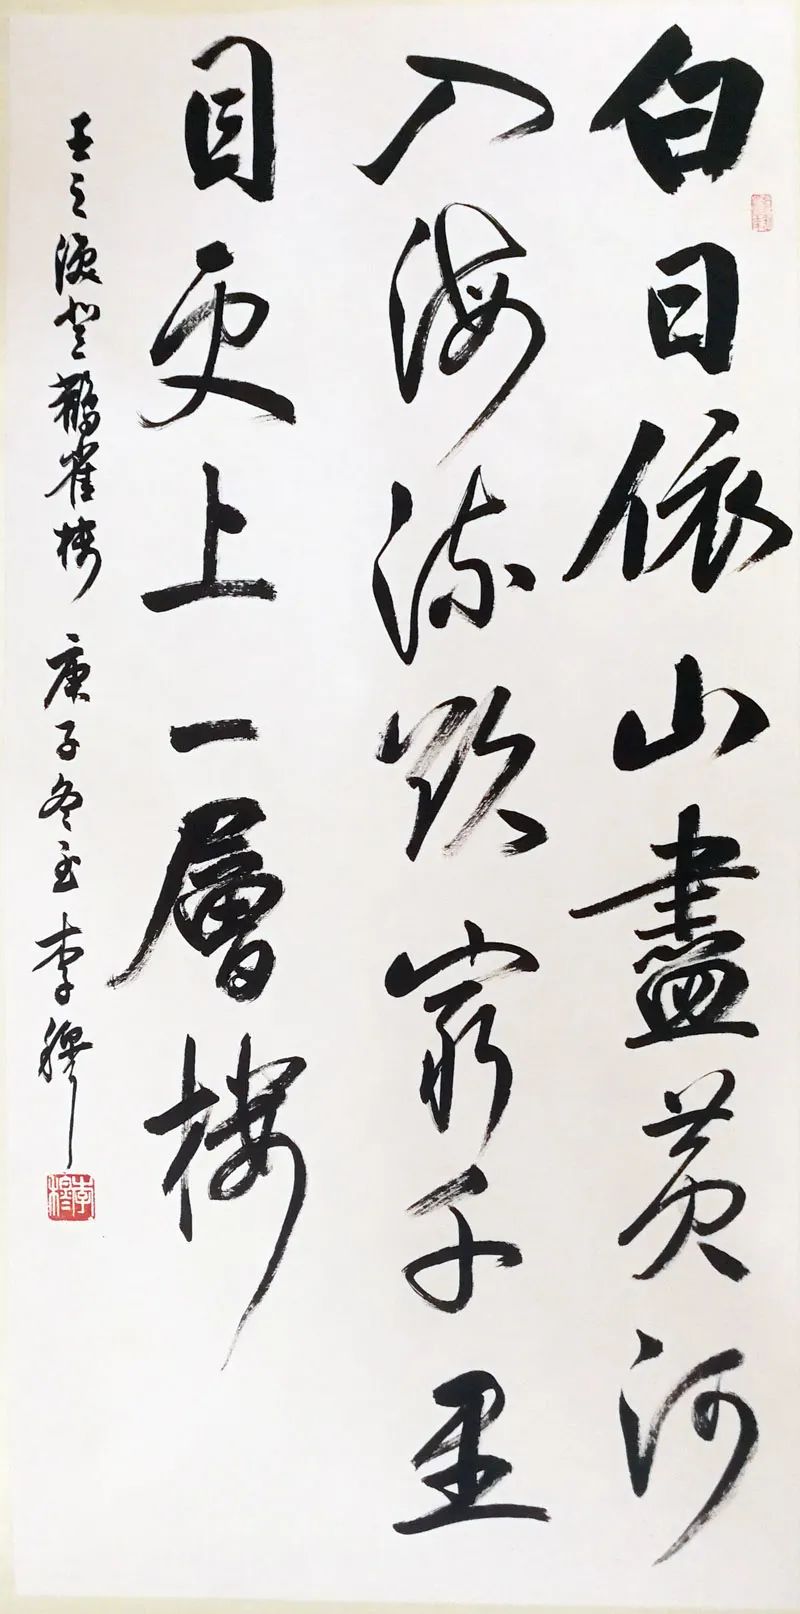 白日依山盡黃河
入海流欲窮千里
目更上一層樓
王之渙登鸛雀樓 庚子冬至 李穆
李穆